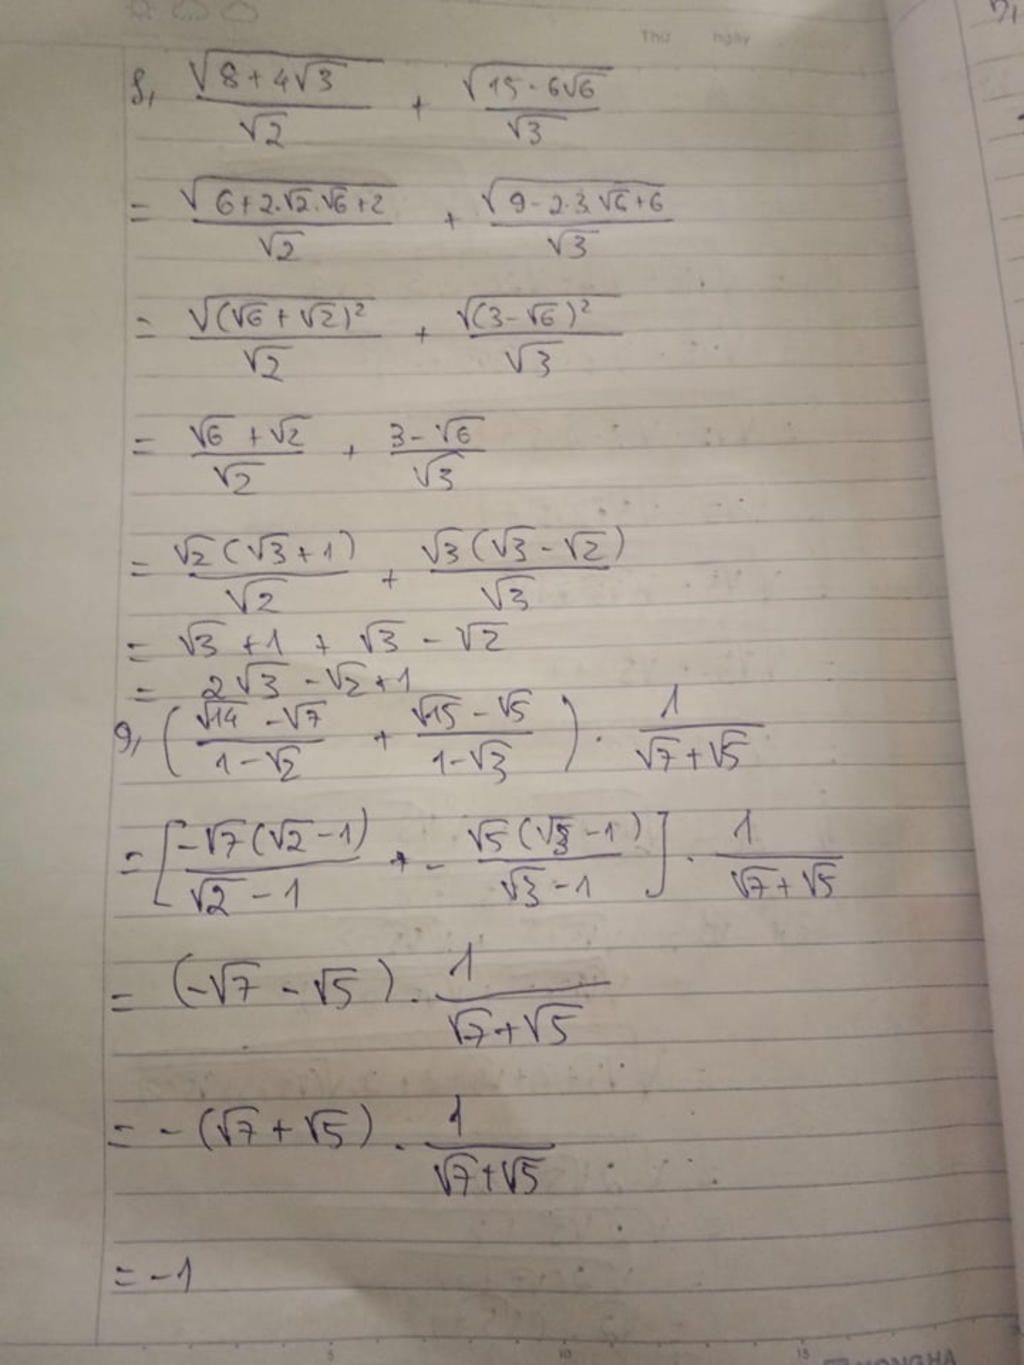 Thứ ngày
8, \frac{\sqrt{8+4\sqrt{3}}}{\sqrt{2}} + \frac{\sqrt{15-6\sqrt{6}}}{\sqrt{3}}
= \frac{\sqrt{6+2.\sqrt{2}.\sqrt{6}+2}}{\sqrt{2}} + \frac{\sqrt{9-2.3.\sqrt{6}+6}}{\sqrt{3}}
= \frac{\sqrt{(\sqrt{6}+\sqrt{2})^2}}{\sqrt{2}} + \frac{\sqrt{(3-\sqrt{6})^2}}{\sqrt{3}}
= \frac{\sqrt{6}+\sqrt{2}}{\sqrt{2}} + \frac{3-\sqrt{6}}{\sqrt{3}}
= \frac{\sqrt{2}(\sqrt{3}+1)}{\sqrt{2}} + \frac{\sqrt{3}(\sqrt{3}-\sqrt{2})}{\sqrt{3}}
= \sqrt{3}+1+\sqrt{3}-\sqrt{2}
= 2\sqrt{3}-\sqrt{2}+1
9, (\frac{\sqrt{14}-\sqrt{7}}{1-\sqrt{2}} + \frac{\sqrt{15}-\sqrt{5}}{1-\sqrt{3}}) . \frac{1}{\sqrt{7}+\sqrt{5}}
= [\frac{-\sqrt{7}(\sqrt{2}-1)}{\sqrt{2}-1} + - \frac{\sqrt{5}(\sqrt{3}-1)}{\sqrt{3}-1}] . \frac{1}{\sqrt{7}+\sqrt{5}}
= (-\sqrt{7}-\sqrt{5}) . \frac{1}{\sqrt{7}+\sqrt{5}}
= -(\sqrt{7}+\sqrt{5}) . \frac{1}{\sqrt{7}+\sqrt{5}}
= -1
5 10 15